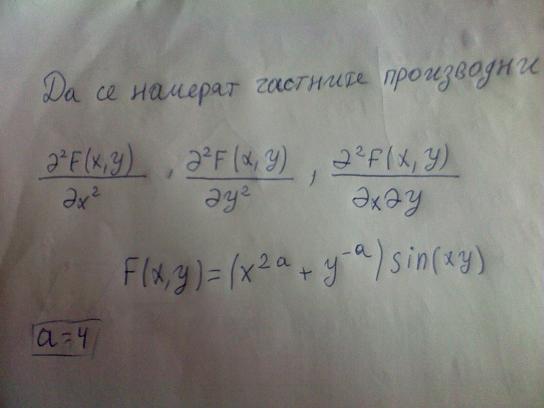 Да се намерат частните производни
∂²F(x,y)/∂x² , ∂²F(x,y)/∂y² , ∂²F(x,y)/∂x∂y
F(x,y)=(x^{2a} + y^{-a}) sin(xy)
a=4